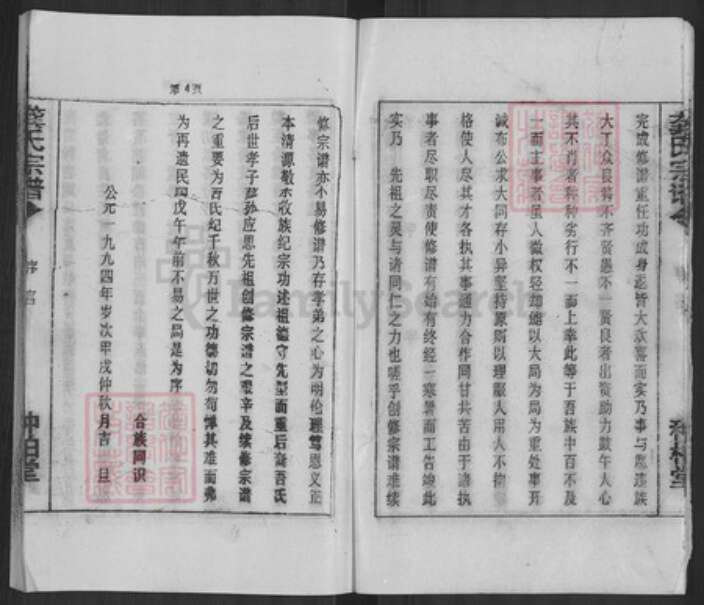 完成修谱重任功成身退皆大欢喜而实乃事与愿违族
大丁众良莠不齐贤愚不一贤良者出资助力鼓午人心
其不肖者种种劣行不一而上幸此等于吾族中百不及
一而主事者虽人微权轻却能以大局为局为重处事开
诚布公求大同存小异坚持原则以理服人用人不拘
格使人尽其才各执其事通力合作同甘共苦由于诸执
事者尽职尽责使修谱有始有终经一寒暑而工告竣此
实乃 先祖之灵与诸同仁之力也嗟乎创修宗谱难续
龚氏宗谱
第4页
修宗谱亦不易修谱乃存孝弟之心为明伦理笃恩义正
本清源敬宗收族纪宗功述祖德守先型而重后裔吾氏
后世孝子贤孙应思先祖创修宗谱之艰辛及续修宗谱
之重要为吾氏纪千秋万世之功德切勿苟惮其难而弗
为再遗民国戊午年前不易之局是为序
合族同识
公元一九九四年岁次甲戌仲秋月吉旦
龚氏宗谱
序言
FamilySearch